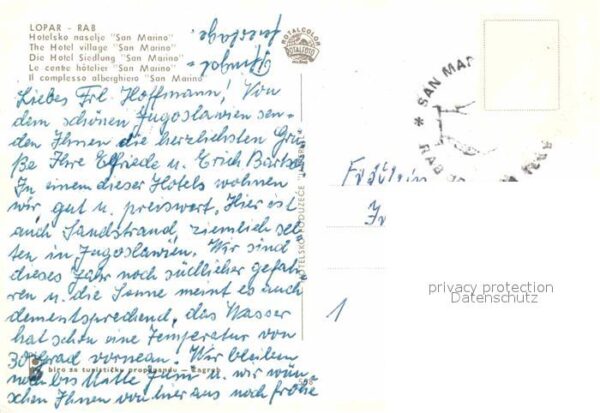 LOPAR - RAB
Hotelsko naselje "San Marino"
The Hotel village "San Marino"
Die Hotel Siedlung "San Marino"
Le centre hôtelier "San Marino"
Il complesso alberghiero "San Marino"
ROTALCOLOR
ROTALFOTO
* SAN MAR
RAB
feiertage.
Liebes Frl. Hoffmann! Von
dem schönen Jugoslawien sen-
den Ihnen die herzlichsten Grü-
ße Ihre Elfriede u. Erich Bartsch
In einem dieser Hotels wohnen
wir gut u. preiswert. Hier ist
auch Sandstrand, ziemlich sel-
ten in Jugoslawien. Wir sind
dieses Jahr noch südlicher gefah-
ren u. die Sonne meint es auch
dementsprechend, das Wasser
hat schon eine Temperatur von
30 Grad vornean. Wir bleiben
noch bis Mitte Juni u. wir wün-
schen Ihnen von hier aus noch frohe
biro za turističku propagandu — Zagreb
HOTELSKO PODUZEĆE "IMPERIAL"
Fräulein
1
privacy protection
Datenschutz